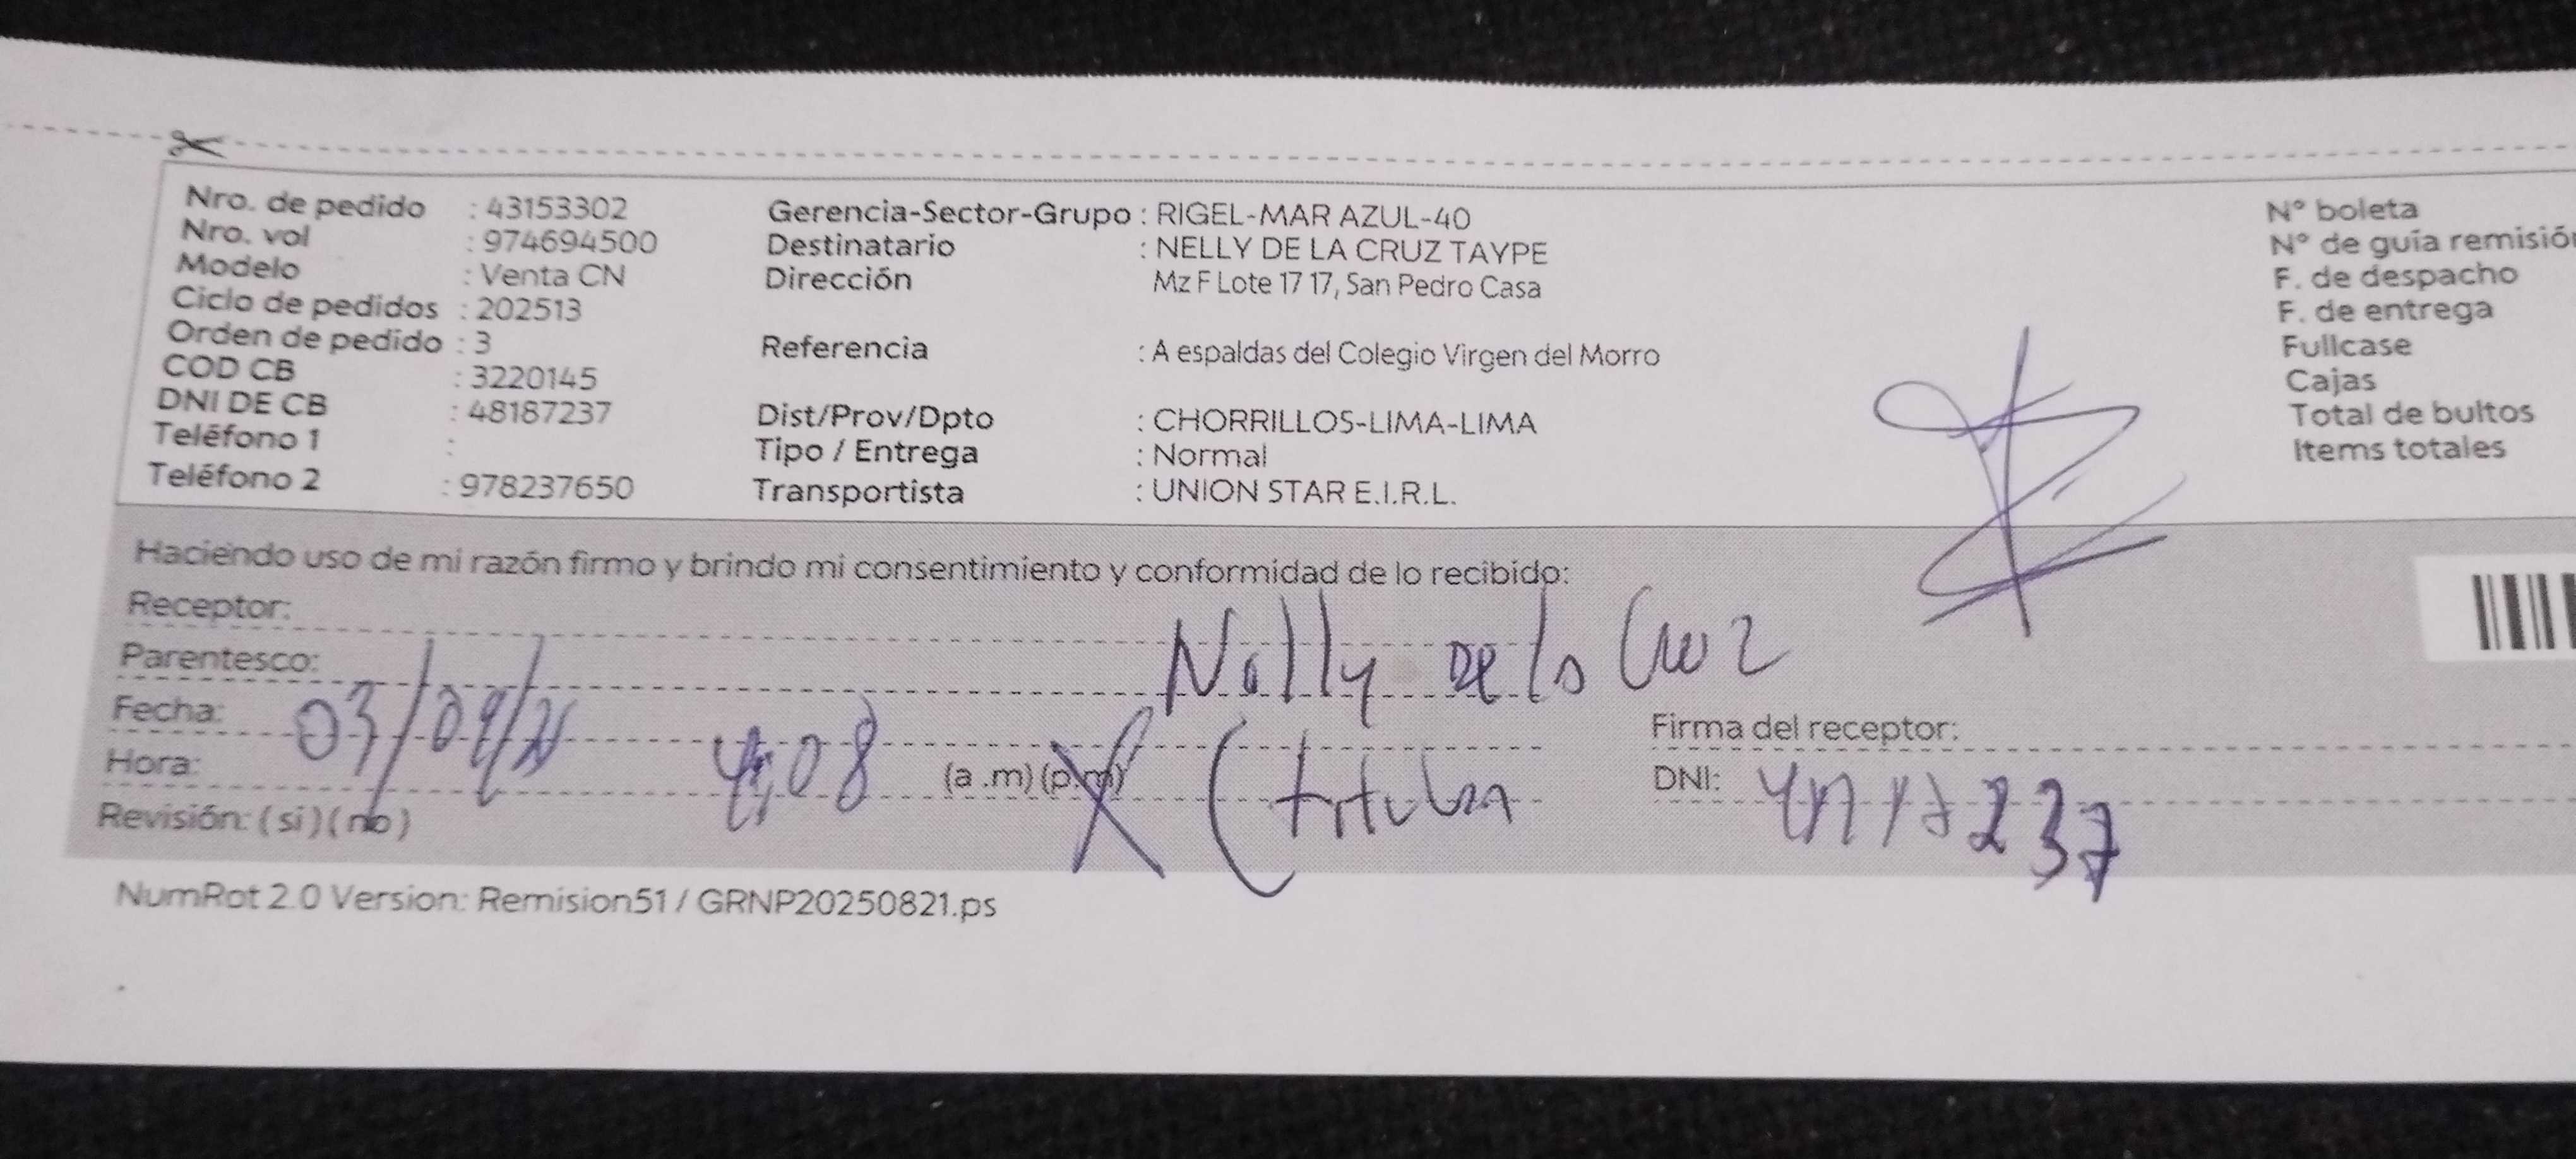 Nro. de pedido : 43153302
Nro. vol : 974694500
Modelo : Venta CN
Ciclo de pedidos : 202513
Orden de pedido : 3
COD CB : 3220145
DNI DE CB : 48187237
Teléfono 1 :
Teléfono 2 : 978237650
Gerencia-Sector-Grupo : RIGEL-MAR AZUL-40
Destinatario : NELLY DE LA CRUZ TAYPE
Dirección Mz F Lote 17 17, San Pedro Casa
Referencia : A espaldas del Colegio Virgen del Morro
Dist/Prov/Dpto : CHORRILLOS-LIMA-LIMA
Tipo / Entrega : Normal
Transportista : UNION STAR E.I.R.L.
N° boleta
N° de guía remisión
F. de despacho
F. de entrega
Fullcase
Cajas
Total de bultos
Items totales
Haciendo uso de mi razón firmo y brindo mi consentimiento y conformidad de lo recibido:
Receptor: Nelly De la Cruz
Parentesco:
Fecha:
Hora: 4:08 (a .m) (p.m)
Revisión: ( si ) ( no )
Firma del receptor:
DNI:
NumRot 2.0 Version: Remision51 / GRNP20250821.ps